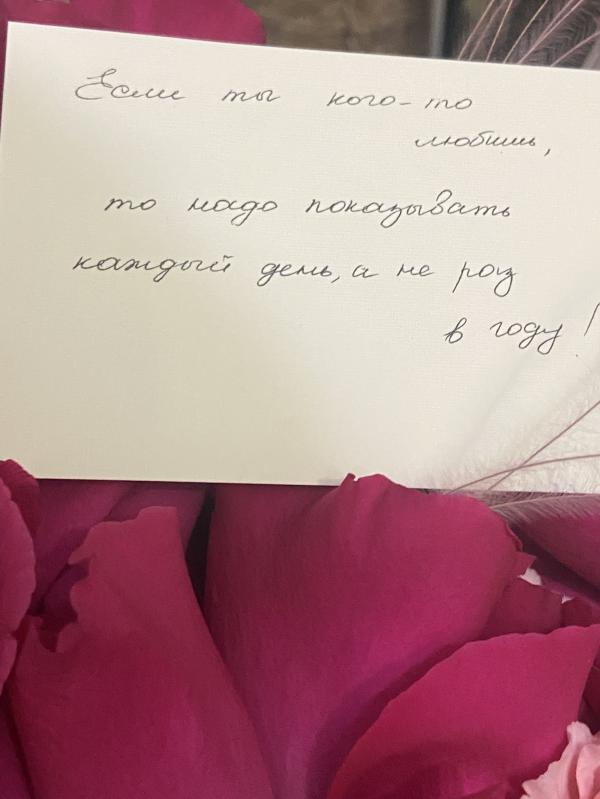 Если ты кого-то
любишь,
то надо показывать
каждый день, а не раз
в году!